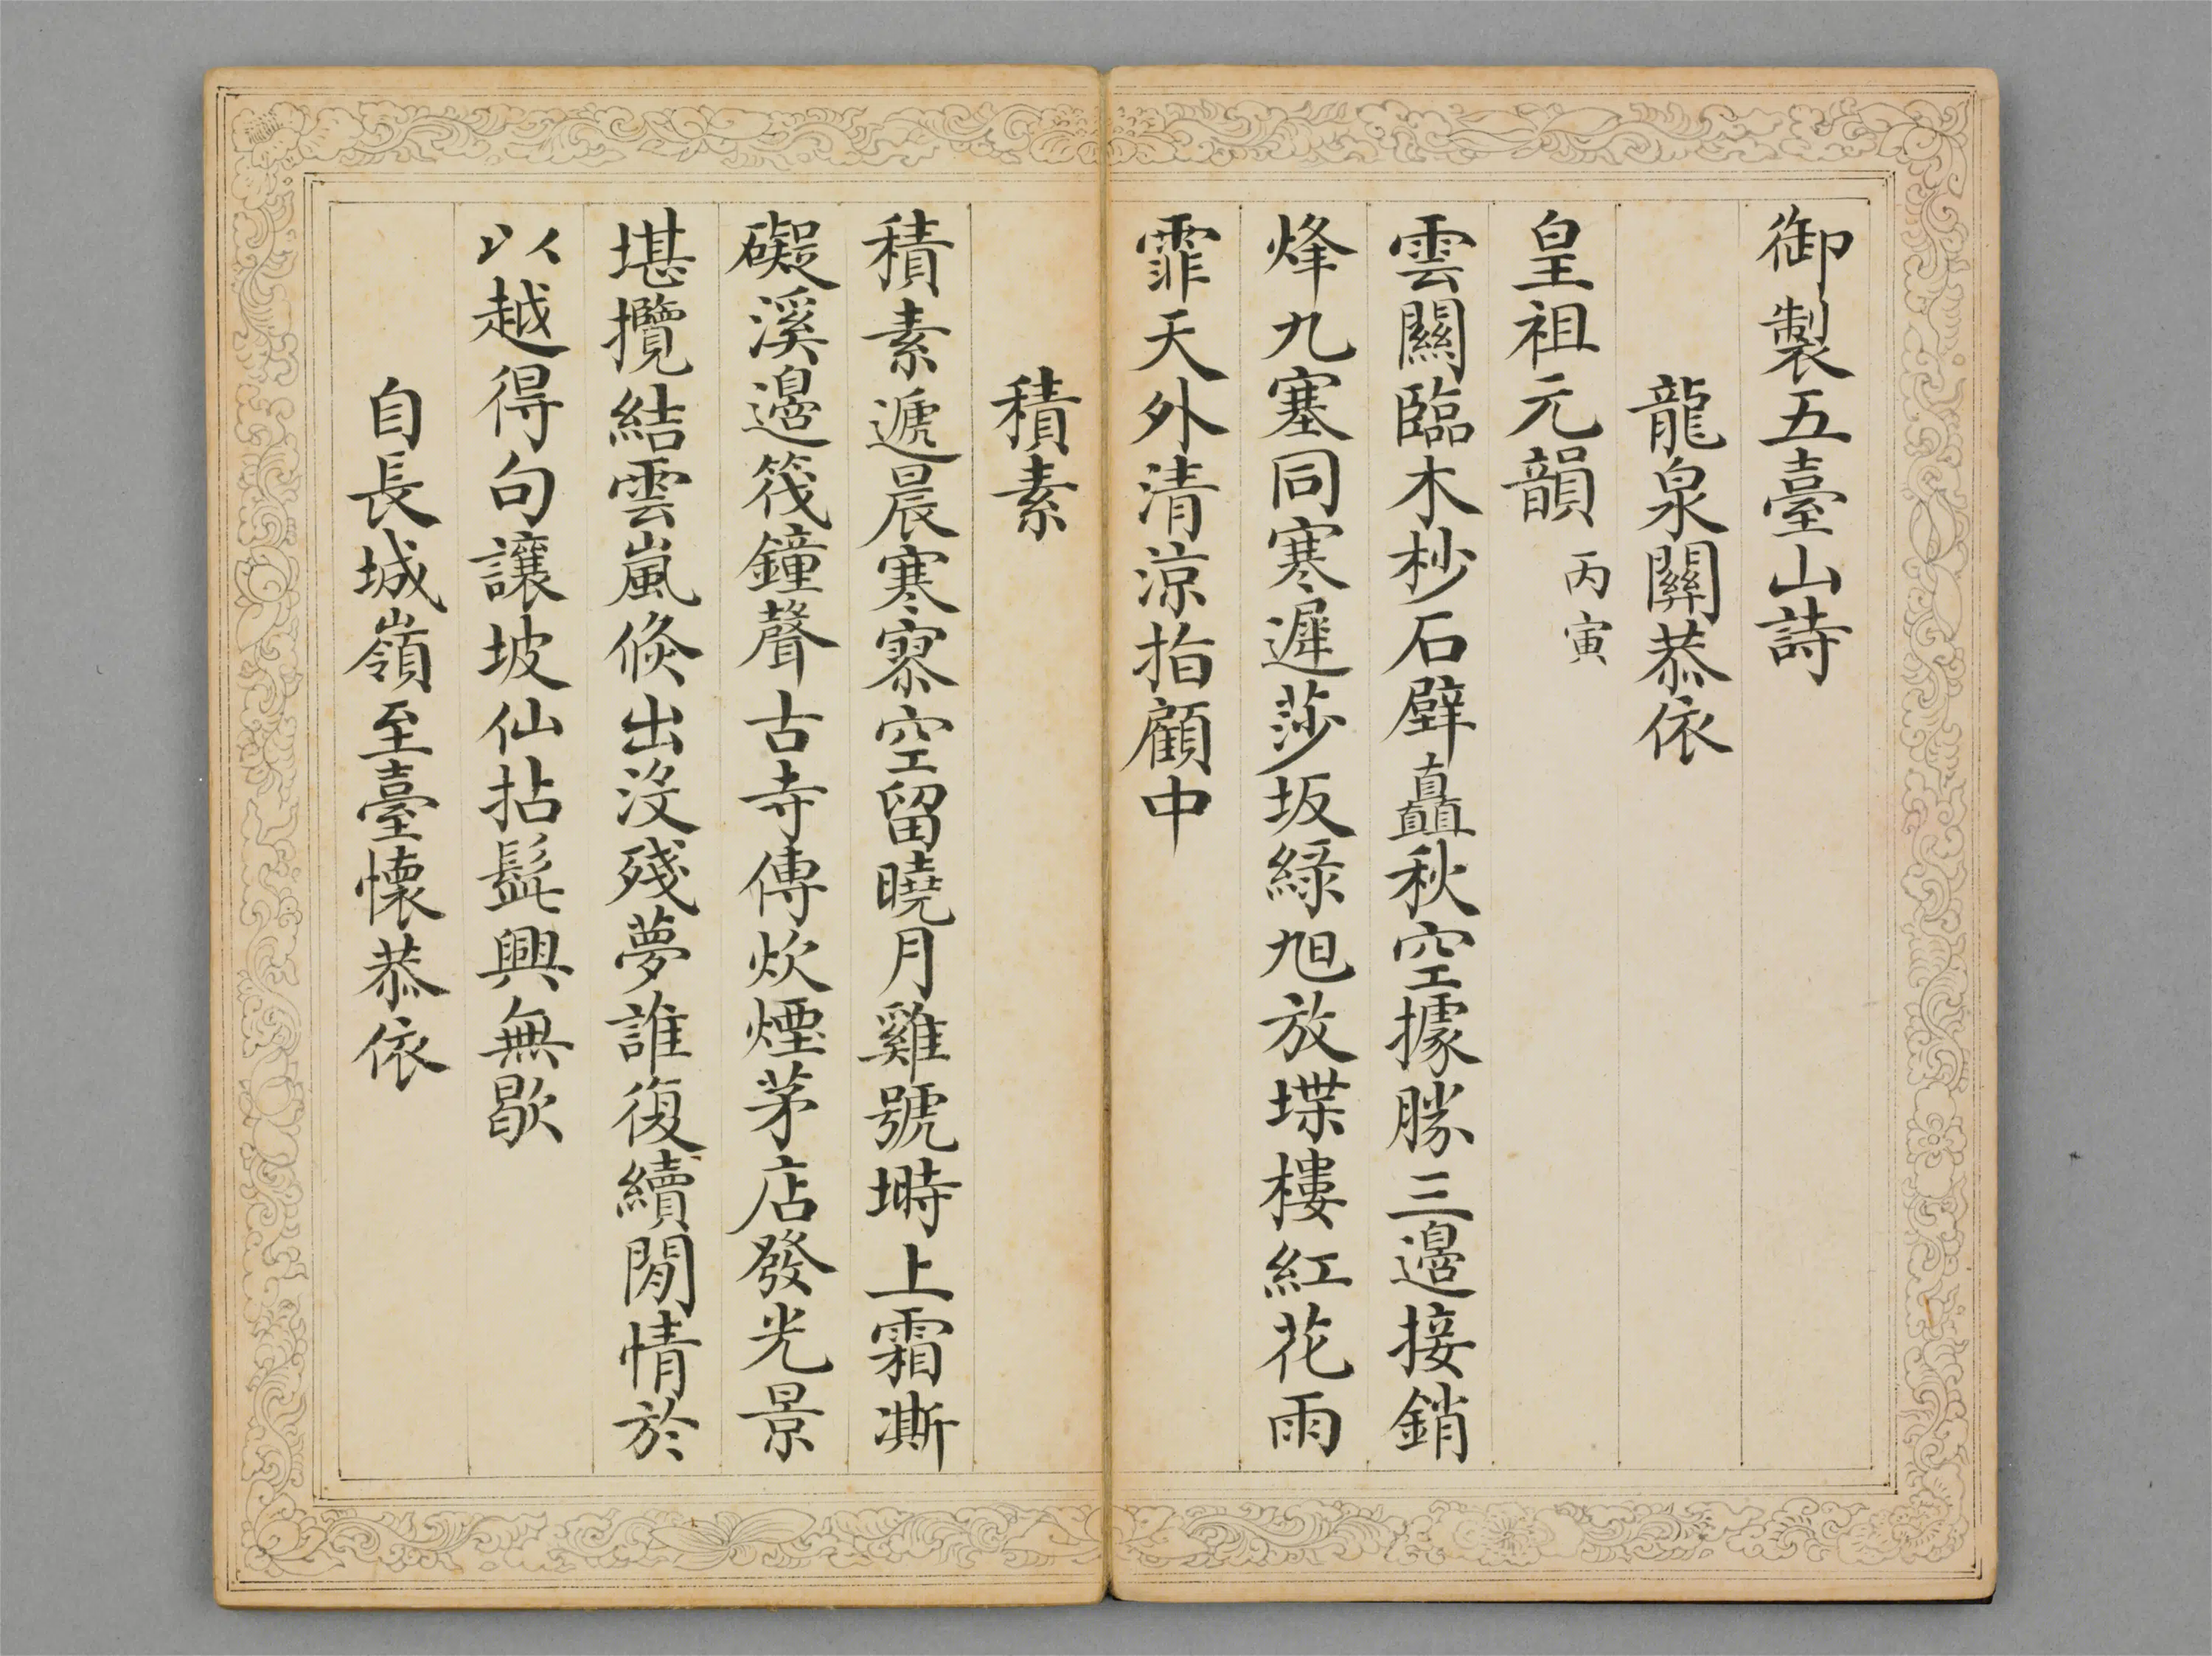 御製五臺山詩
龍泉關恭依
皇祖元韻 丙寅
雲關臨木杪石壁矗秋空據勝三邊接銷
烽九塞同寒遲莎坂綠旭放堞樓紅花雨
霏天外清涼指顧中
積素
積素遞晨寒寥空留曉月雞號塒上霜澌
礙溪邊筏鐘聲古寺傳炊煙茅店發光景
堪攬結雲嵐倏出沒殘夢誰復續閒情於
以越得句讓坡仙拈髭興無歇
自長城嶺至臺懷恭依